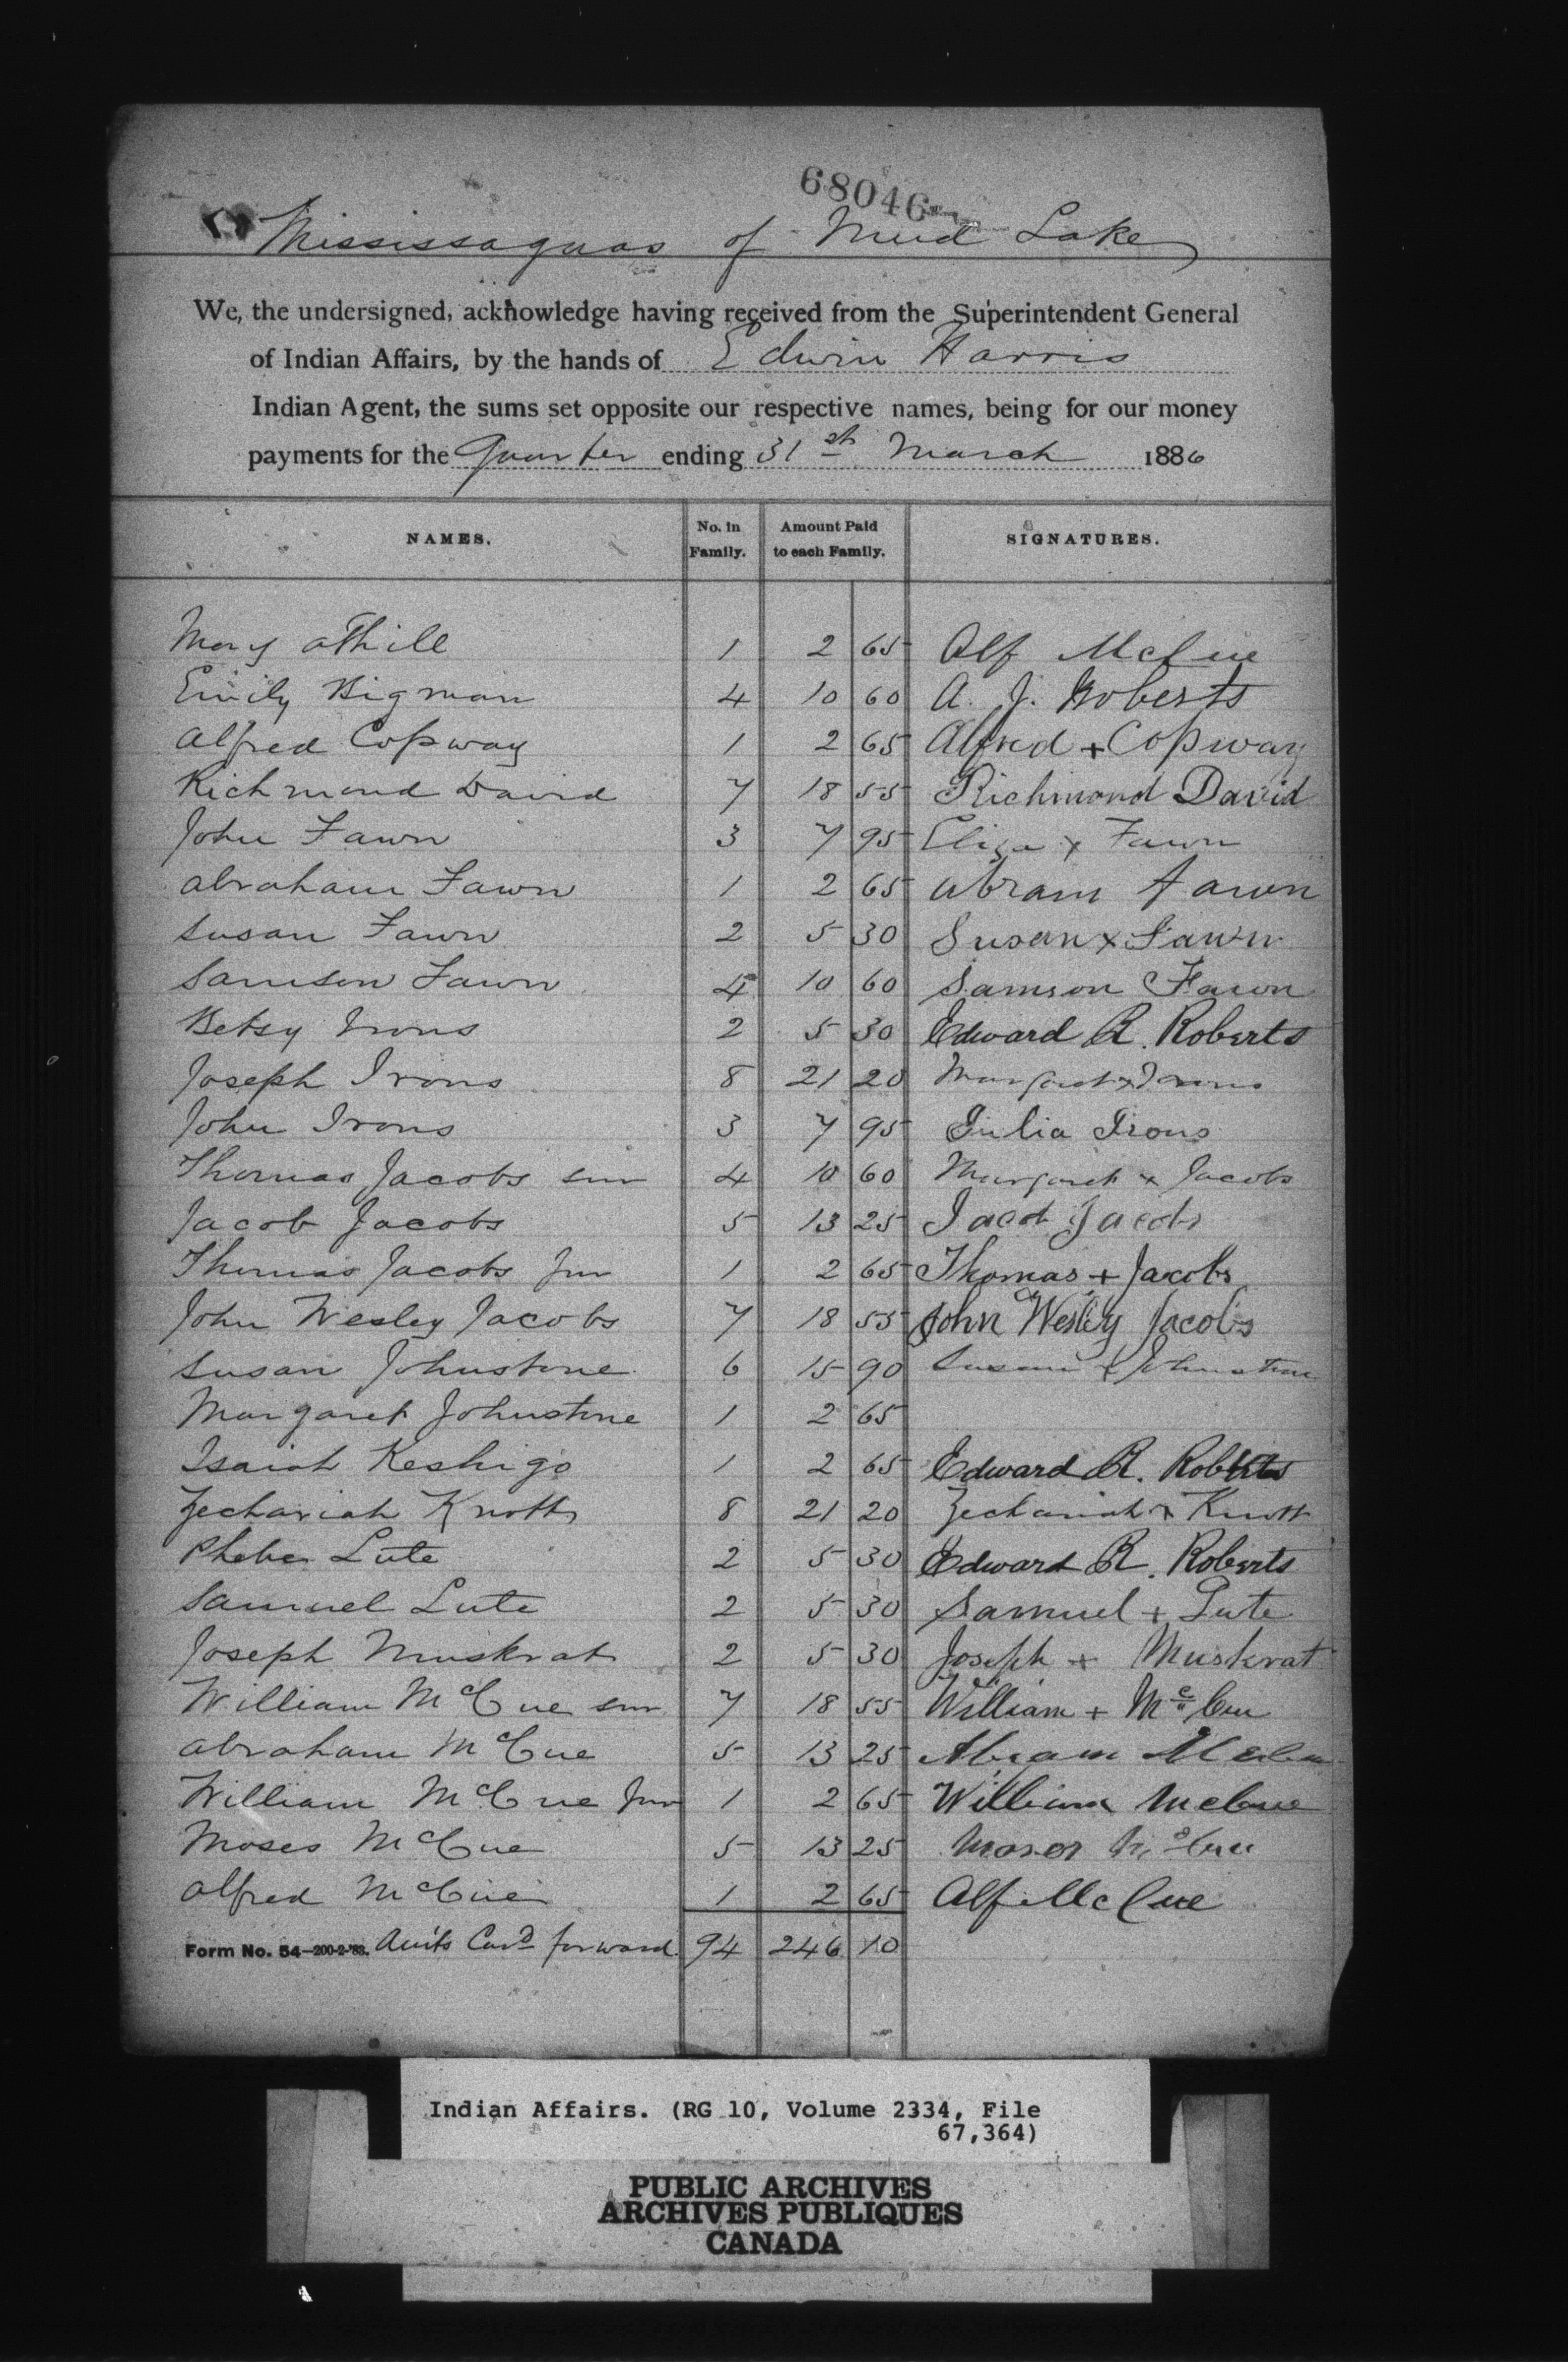 68046
Mississaguas of Mud Lake
We, the undersigned, acknowledge having received from the Superintendent General
of Indian Affairs, by the hands of Edwin Harris
Indian Agent, the sums set opposite our respective names, being for our money
payments for the Quarter ending 31st March 1886
NAMES. No. in Family. Amount Paid to each Family. SIGNATURES.
Mary Athill 1 2 65 Alf McCue
Emily Bigman 4 10 60 A. J. Roberts
Alfred Copway 1 2 65 Alfred + Copway
Richmond David 7 18 55 Richmond David
John Fawn 3 7 95 Eliza x Fawn
Abraham Fawn 1 2 65 Abram Fawn
Susan Fawn 2 5 30 Susan x Fawn
Samson Fawn 4 10 60 Samson Fawn
Betsy Irons 2 5 30 Edward R. Roberts
Joseph Irons 8 21 20 Margaret x Irons
John Irons 3 7 95 Julia Irons
Thomas Jacobs snr 4 10 60 Margaret x Jacobs
Jacob Jacobs 5 13 25 Jacob Jacobs
Thomas Jacobs Jnr 1 2 65 Thomas + Jacobs
John Wesley Jacobs 7 18 55 John Wesley Jacobs
Susan Johnstone 6 15 90 Susan x Johnstone
Margaret Johnstone 1 2 65
Isaiah Keshigo 1 2 65 Edward R. Roberts
Zechariah Knott 8 21 20 Zechariah x Knott
Phebe Lute 2 5 30 Edward R. Roberts
Samuel Lute 2 5 30 Samuel + Lute
Joseph Muskrat 2 5 30 Joseph + Muskrat
William McCue snr 7 18 55 William + McCue
Abraham McCue 5 13 25 Abram McCue
William McCue Jnr 1 2 65 William McCue
Moses McCue 5 13 25 Moses McCue
Alfred McCue 1 2 65 Alf McCue
Form No. 54—200-2-'83. Am'ts Card forward 94 246 10
Indian Affairs. (RG 10, Volume 2334, File
67,364)
PUBLIC ARCHIVES
ARCHIVES PUBLIQUES
CANADA